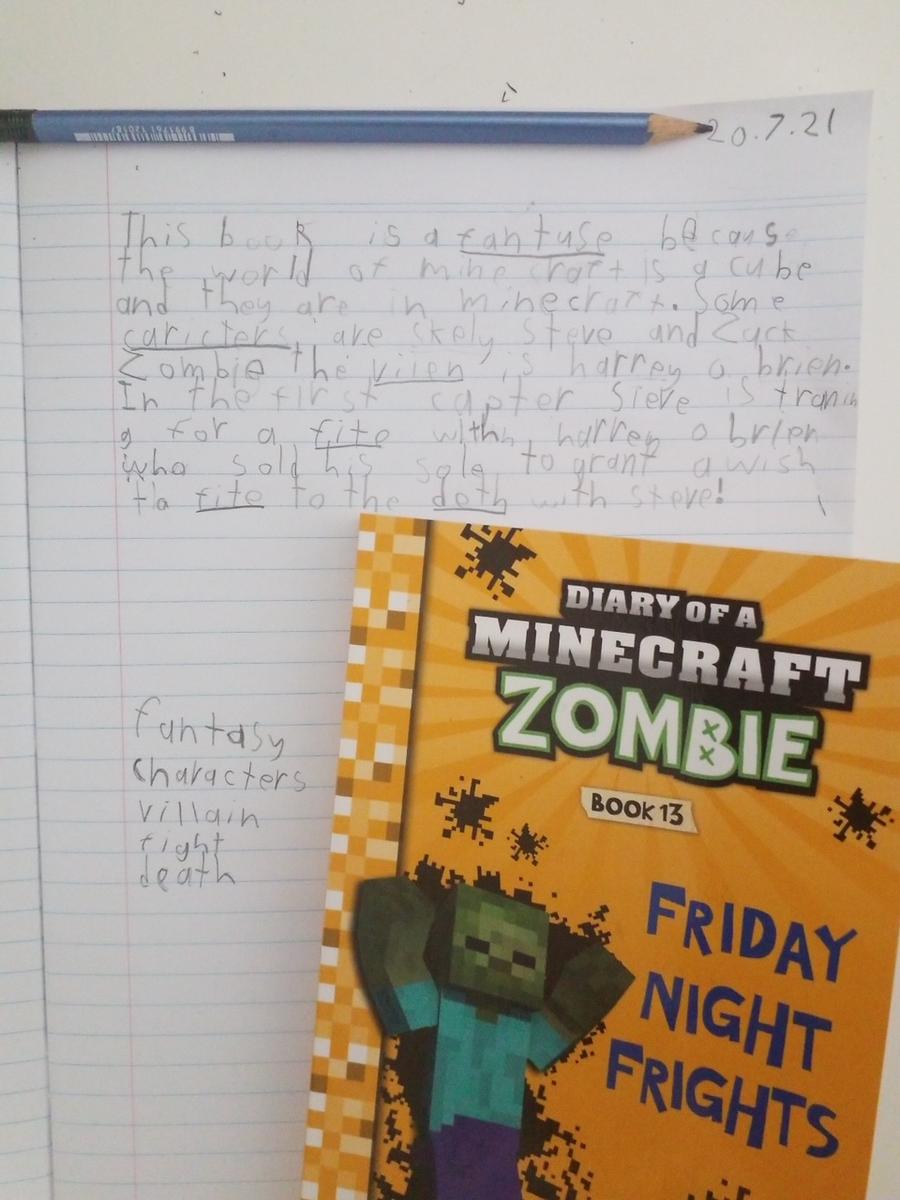 20.7.21
This book is a fantuse because
the world of minecraft is a cube
and they are in minecraft. Some
caricters are skely Steve and Zack
Zombie the vilen is harrey o brien.
In the first capter Steve is tranin
g for a fite with harrey o brien
who sold his sole to grant a wish
to fite to the deth with steve!
fantasy
characters
villain
fight
death
DIARY OF A
MINECRAFT
ZOMBIE
BOOK 13
FRIDAY
NIGHT
FRIGHTS